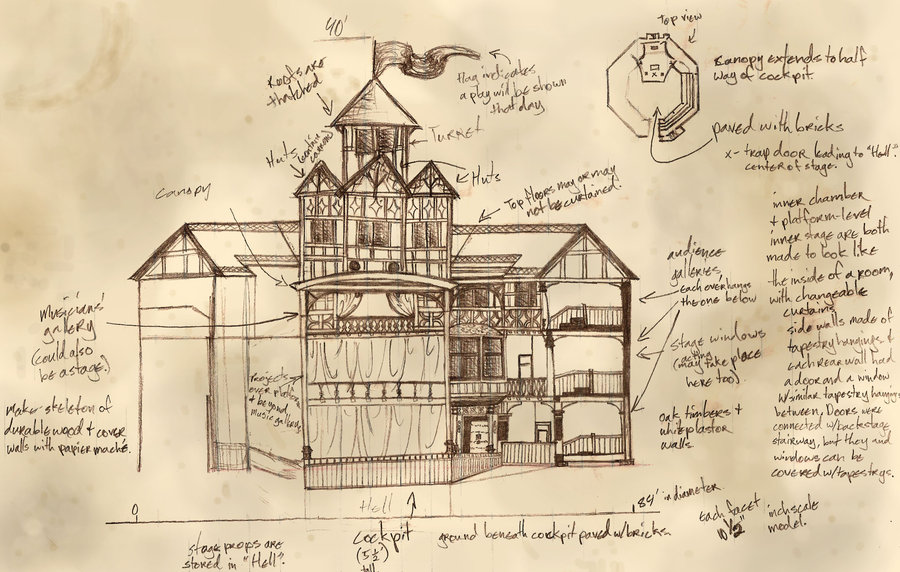 40'
Roofs are
thatched
flag indicates
a play will be shown
that day.
TURRET
Huts
Huts
Top floors may or may
not be curtained.
canopy
Top view
Canopy extends to half
way of cockpit
paved with bricks
x- trap door leading to "Hell".
center of stage.
inner chamber
& platform-level
inner stage are both
made to look like
the inside of a room,
with changeable
curtains
side walls made of
tapestry hangings, &
each rear wall had
a door and a window
w/similar tapestry hangings
between. Doors were
connected w/backstage
stairway, but they and
windows can be
covered w/tapestrys.
audience
galleries
each overhangs
the one below
stage windows
(acting
may take place
here too).
oak timbers &
white plastor
walls.
Musician's
gallery
(could also
be a stage.)
Projects
over platform
& beyond
music gallery
make skeleton of
durable wood & cover
walls with papier maché.
0
Hell
84' in diameter
Each facet
10 1/2"
inch scale
model.
stage props are
stored in "Hell".
Cockpit
(5 1/2'
tall
ground beneath cockpit paved w/bricks.